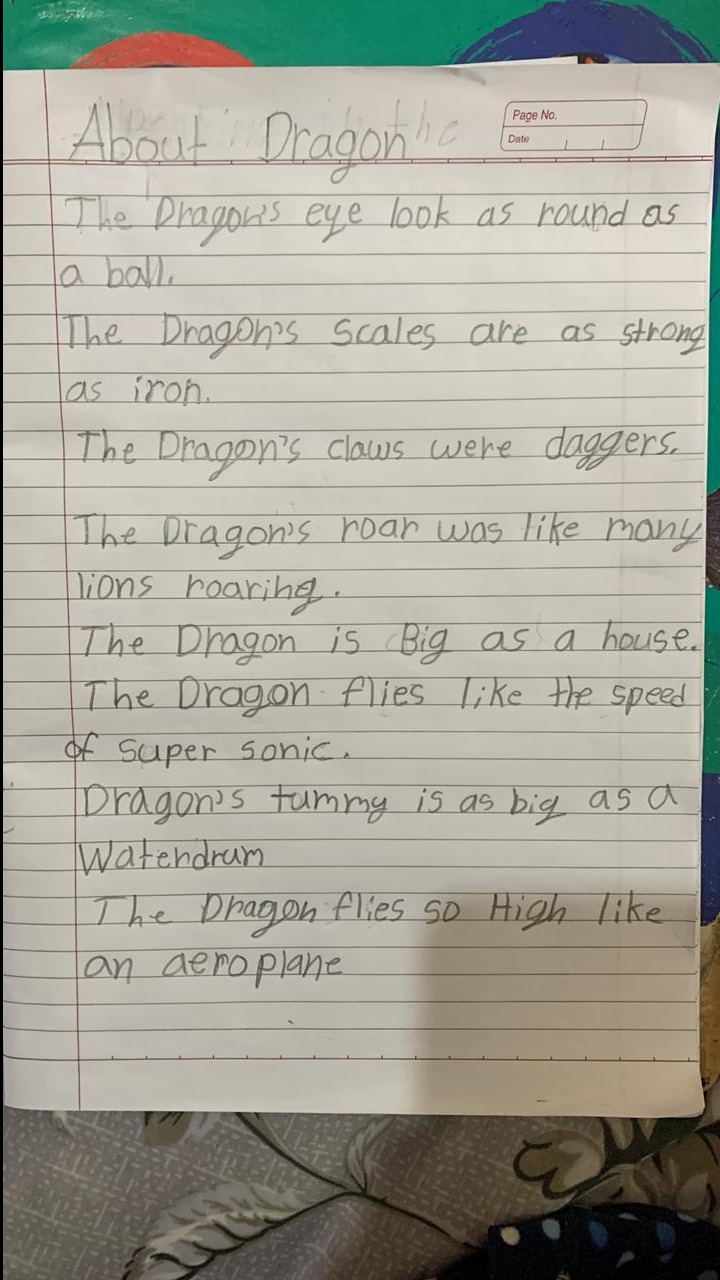 About Dragon
Page No.
Date
The Dragon's eye look as round as
a ball.
The Dragon's scales are as strong
as iron.
The Dragon's claws were daggers.
The Dragon's roar was like many
lions roaring.
The Dragon is Big as a house.
The Dragon flies like the speed
of super sonic.
Dragon's tummy is as big as a
Waterdrum
The Dragon flies so High like
an aeroplane